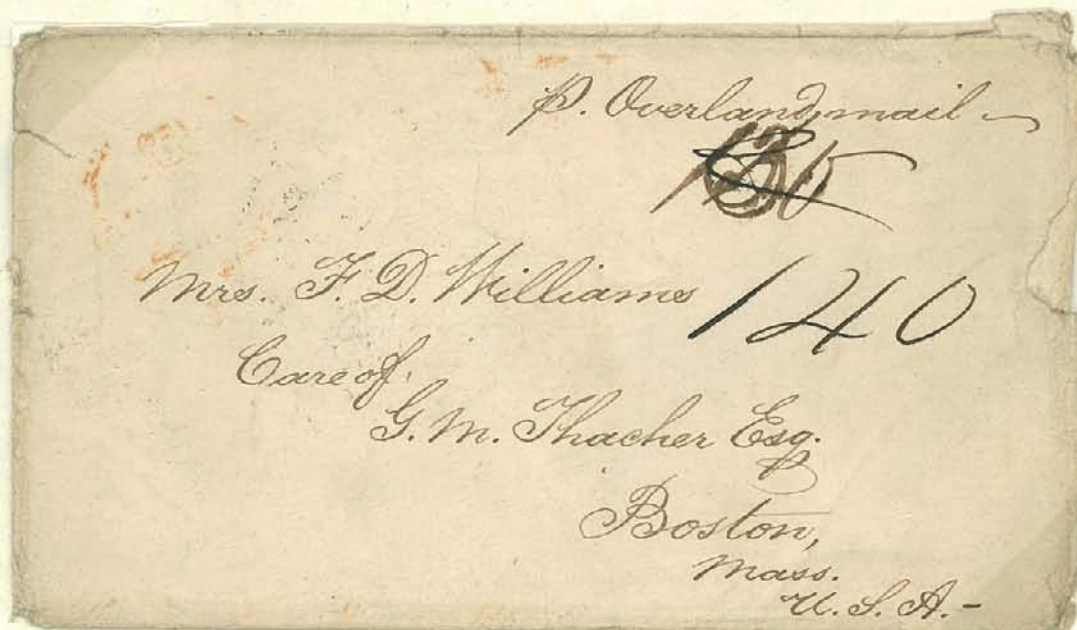 p. Overland mail -
Mrs. F. D. Williams 140
Care of
G. M. Thacher Esq.
Boston,
Mass.
U. S. A. -